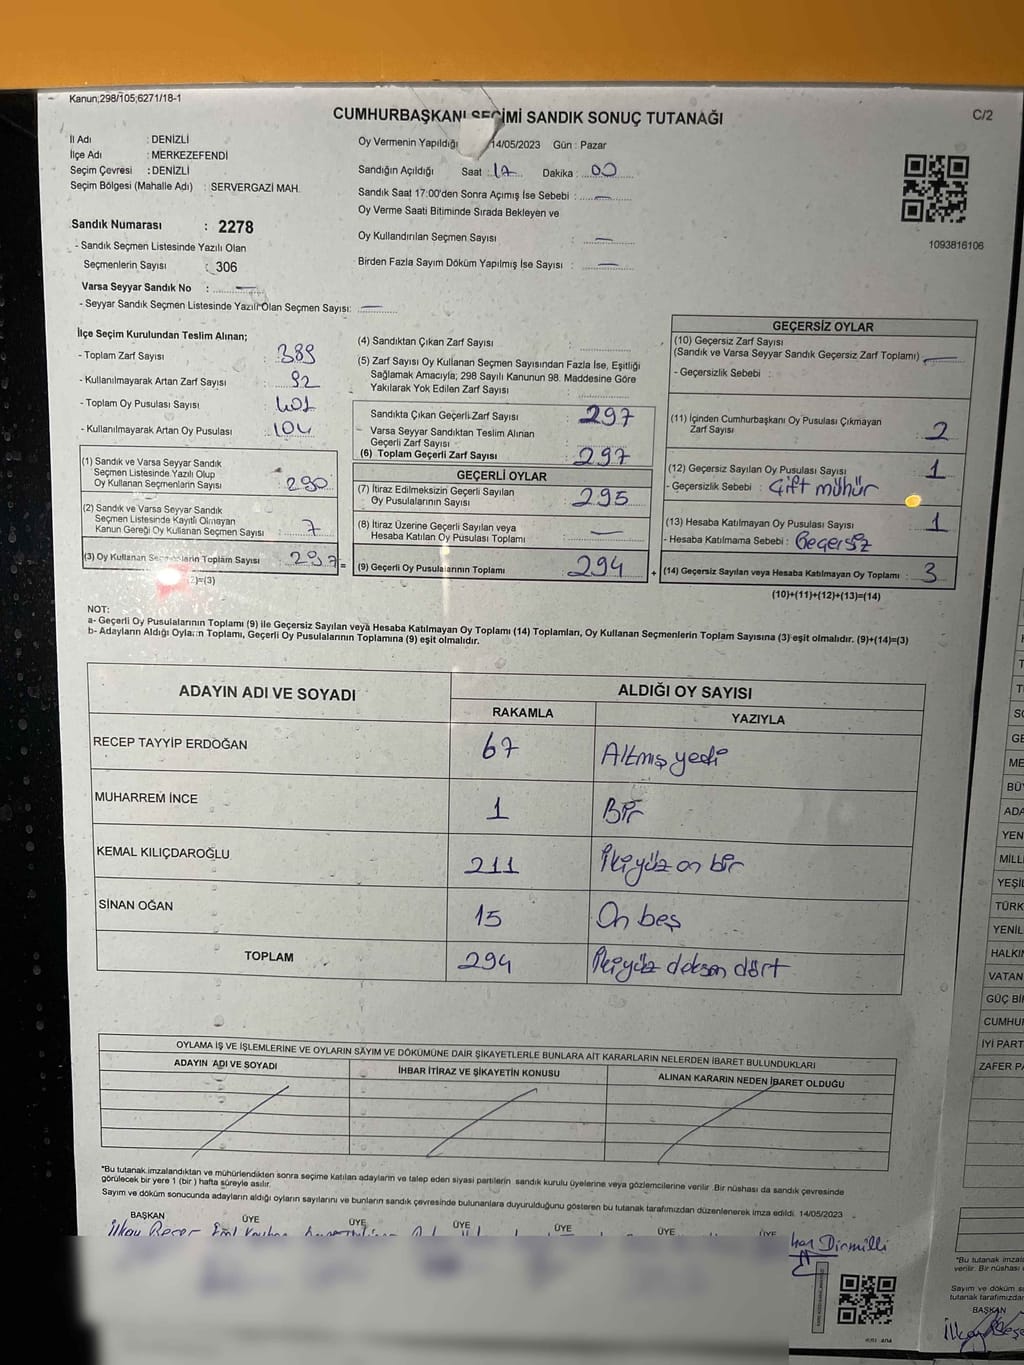 Kanun;298/105;6271/18-1
CUMHURBAŞKANI SEÇİMİ SANDIK SONUÇ TUTANAĞI
C/2
İl Adı : DENİZLİ
İlçe Adı : MERKEZEFENDİ
Seçim Çevresi : DENİZLİ
Seçim Bölgesi (Mahalle Adı) : SERVERGAZİ MAH.
Sandık Numarası : 2278
- Sandık Seçmen Listesinde Yazılı Olan
Seçmenlerin Sayısı : 306
Varsa Seyyar Sandık No : —
- Seyyar Sandık Seçmen Listesinde Yazılı Olan Seçmen Sayısı: —
Oy Vermenin Yapıldığı 14/05/2023 Gün : Pazar
Sandığın Açıldığı Saat : 17 Dakika : 00
Sandık Saat 17:00'den Sonra Açımış İse Sebebi : —
Oy Verme Saati Bitiminde Sırada Bekleyen ve
Oy Kullandırılan Seçmen Sayısı : —
Birden Fazla Sayım Döküm Yapılmış İse Sayısı : —
1093816106
İlçe Seçim Kurulundan Teslim Alınan;
- Toplam Zarf Sayısı : 389
- Kullanılmayarak Artan Zarf Sayısı : 92
- Toplam Oy Pusulası Sayısı : 401
- Kullanılmayarak Artan Oy Pusulası : 104
(1) Sandık ve Varsa Seyyar Sandık
Seçmen Listesinde Yazılı Olup
Oy Kullanan Seçmenlerin Sayısı : 290
(2) Sandık ve Varsa Seyyar Sandık
Seçmen Listesinde Kayıtlı Olmayan
Kanun Gereği Oy Kullanan Seçmen Sayısı : 7
(3) Oy Kullanan Seçmenlerin Toplam Sayısı : 297 =
2)=(3)
(4) Sandıktan Çıkan Zarf Sayısı :
(5) Zarf Sayısı Oy Kullanan Seçmen Sayısından Fazla İse, Eşitliği
Sağlamak Amacıyla; 298 Sayılı Kanunun 98. Maddesine Göre
Yakılarak Yok Edilen Zarf Sayısı :
Sandıkta Çıkan Geçerli Zarf Sayısı : 297
Varsa Seyyar Sandıktan Teslim Alınan
Geçerli Zarf Sayısı :
(6) Toplam Geçerli Zarf Sayısı : 297
GEÇERLİ OYLAR
(7) İtiraz Edilmeksizin Geçerli Sayılan
Oy Pusulalarının Sayısı : 295
(8) İtiraz Üzerine Geçerli Sayılan veya
Hesaba Katılan Oy Pusulası Toplamı : —
(9) Geçerli Oy Pusulalarının Toplamı : 294 +
GEÇERSİZ OYLAR
(10) Geçersiz Zarf Sayısı
(Sandık ve Varsa Seyyar Sandık Geçersiz Zarf Toplamı) : —
- Geçersizlik Sebebi :
(11) İçinden Cumhurbaşkanı Oy Pusulası Çıkmayan
Zarf Sayısı : 2
(12) Geçersiz Sayılan Oy Pusulası Sayısı : 1
- Geçersizlik Sebebi : Çift mühür
(13) Hesaba Katılmayan Oy Pusulası Sayısı : 1
- Hesaba Katılmama Sebebi : Geçersiz
(14) Geçersiz Sayılan veya Hesaba Katılmayan Oy Toplamı : 3
(10)+(11)+(12)+(13)=(14)
NOT:
a- Geçerli Oy Pusulalarının Toplamı (9) ile Geçersiz Sayılan veya Hesaba Katılmayan Oy Toplamı (14) Toplamları, Oy Kullanan Seçmenlerin Toplam Sayısına (3) eşit olmalıdır. (9)+(14)=(3)
b- Adayların Aldığı Oyların Toplamı, Geçerli Oy Pusulalarının Toplamına (9) eşit olmalıdır.
ADAYIN ADI VE SOYADI ALDIĞI OY SAYISI
RAKAMLA YAZIYLA
RECEP TAYYİP ERDOĞAN 67 Altmış yedi
MUHARREM İNCE 1 Bir
KEMAL KILIÇDAROĞLU 211 İkiyüz on bir
SİNAN OĞAN 15 On beş
TOPLAM 294 İkiyüz doksan dört
OYLAMA İŞ VE İŞLEMLERİNE VE OYLARIN SAYIM VE DÖKÜMÜNE DAİR ŞİKAYETLERLE BUNLARA AİT KARARLARIN NELERDEN İBARET BULUNDUKLARI
ADAYIN ADI VE SOYADI İHBAR İTİRAZ VE ŞİKAYETİN KONUSU ALINAN KARARIN NEDEN İBARET OLDUĞU
*Bu tutanak imzalandıktan ve mühürlendikten sonra seçime katılan adayların ve talep eden siyasi partilerin sandık kurulu üyelerine veya gözlemcilerine verilir. Bir nüshası da sandık çevresinde
görülecek bir yere 1 (bir ) hafta süreyle asılır.
Sayım ve döküm sonucunda adayların aldığı oyların sayılarını ve bunların sandık çevresinde bulunanlara duyurulduğunu gösteren bu tutanak tarafımızdan düzenlenerek imza edildi. 14/05/2023
BAŞKAN ÜYE ÜYE ÜYE ÜYE ÜYE ÜYE
İlkay Dirmilli
YEŞİL
TÜRK
YENİL
HALKI
VATAN
GÜÇ Bİ
CUMHU
İYİ PART
ZAFER PA
*Bu tutanak imzala
verilir. Bir nüshası
Sayım ve döküm s
tutanak tarafımızdan
BAŞKAN
İlkay